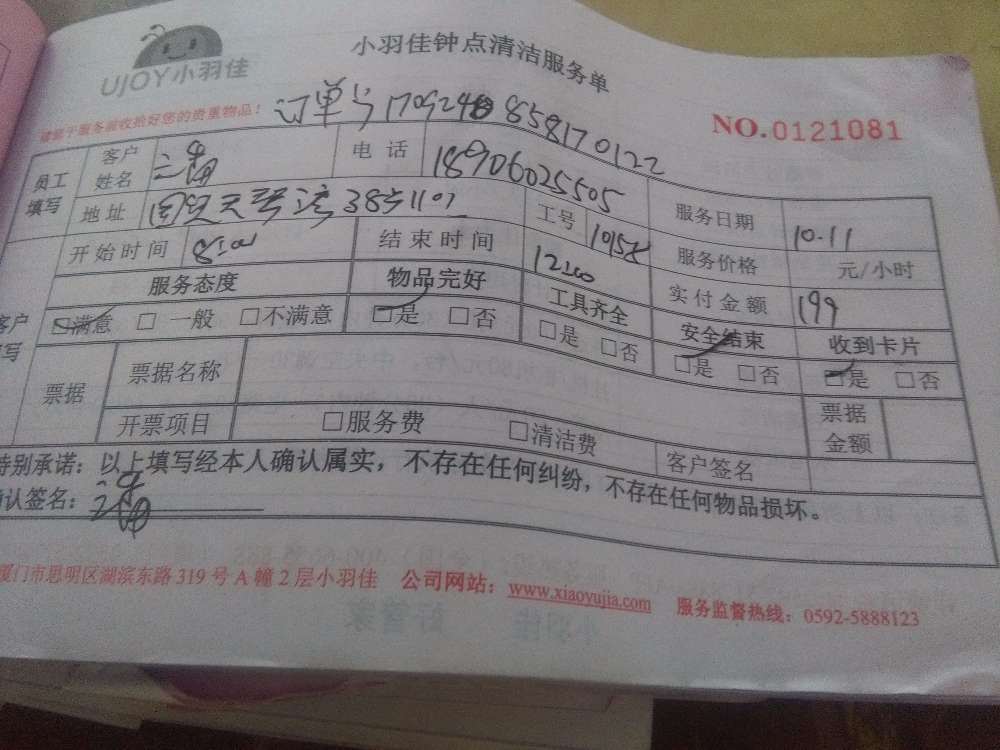 UJOY小羽佳
小羽佳钟点清洁服务单
请顾于服务前收拾好您的贵重物品！
订单号170924858170122
NO.0121081
员工填写 客户姓名 电话 18906025505 服务日期 10.11
地址 国贸天琴湾38号1101 工号 10158 服务价格 元/小时
开始时间 8:00 结束时间 12:00 实付金额 199
服务态度 物品完好 工具齐全 安全结束 收到卡片
客户填写 ☑满意 □一般 □不满意 ☑是 □否 □是 □否 ☑是 □否 ☑是 □否
票据 票据名称 票据金额
开票项目 □服务费 □清洁费 客户签名
特别承诺：以上填写经本人确认属实，不存在任何纠纷，不存在任何物品损坏。
确认签名：
厦门市思明区湖滨东路319号A幢2层小羽佳 公司网站：www.xiaoyujia.com 服务监督热线：0592-5888123